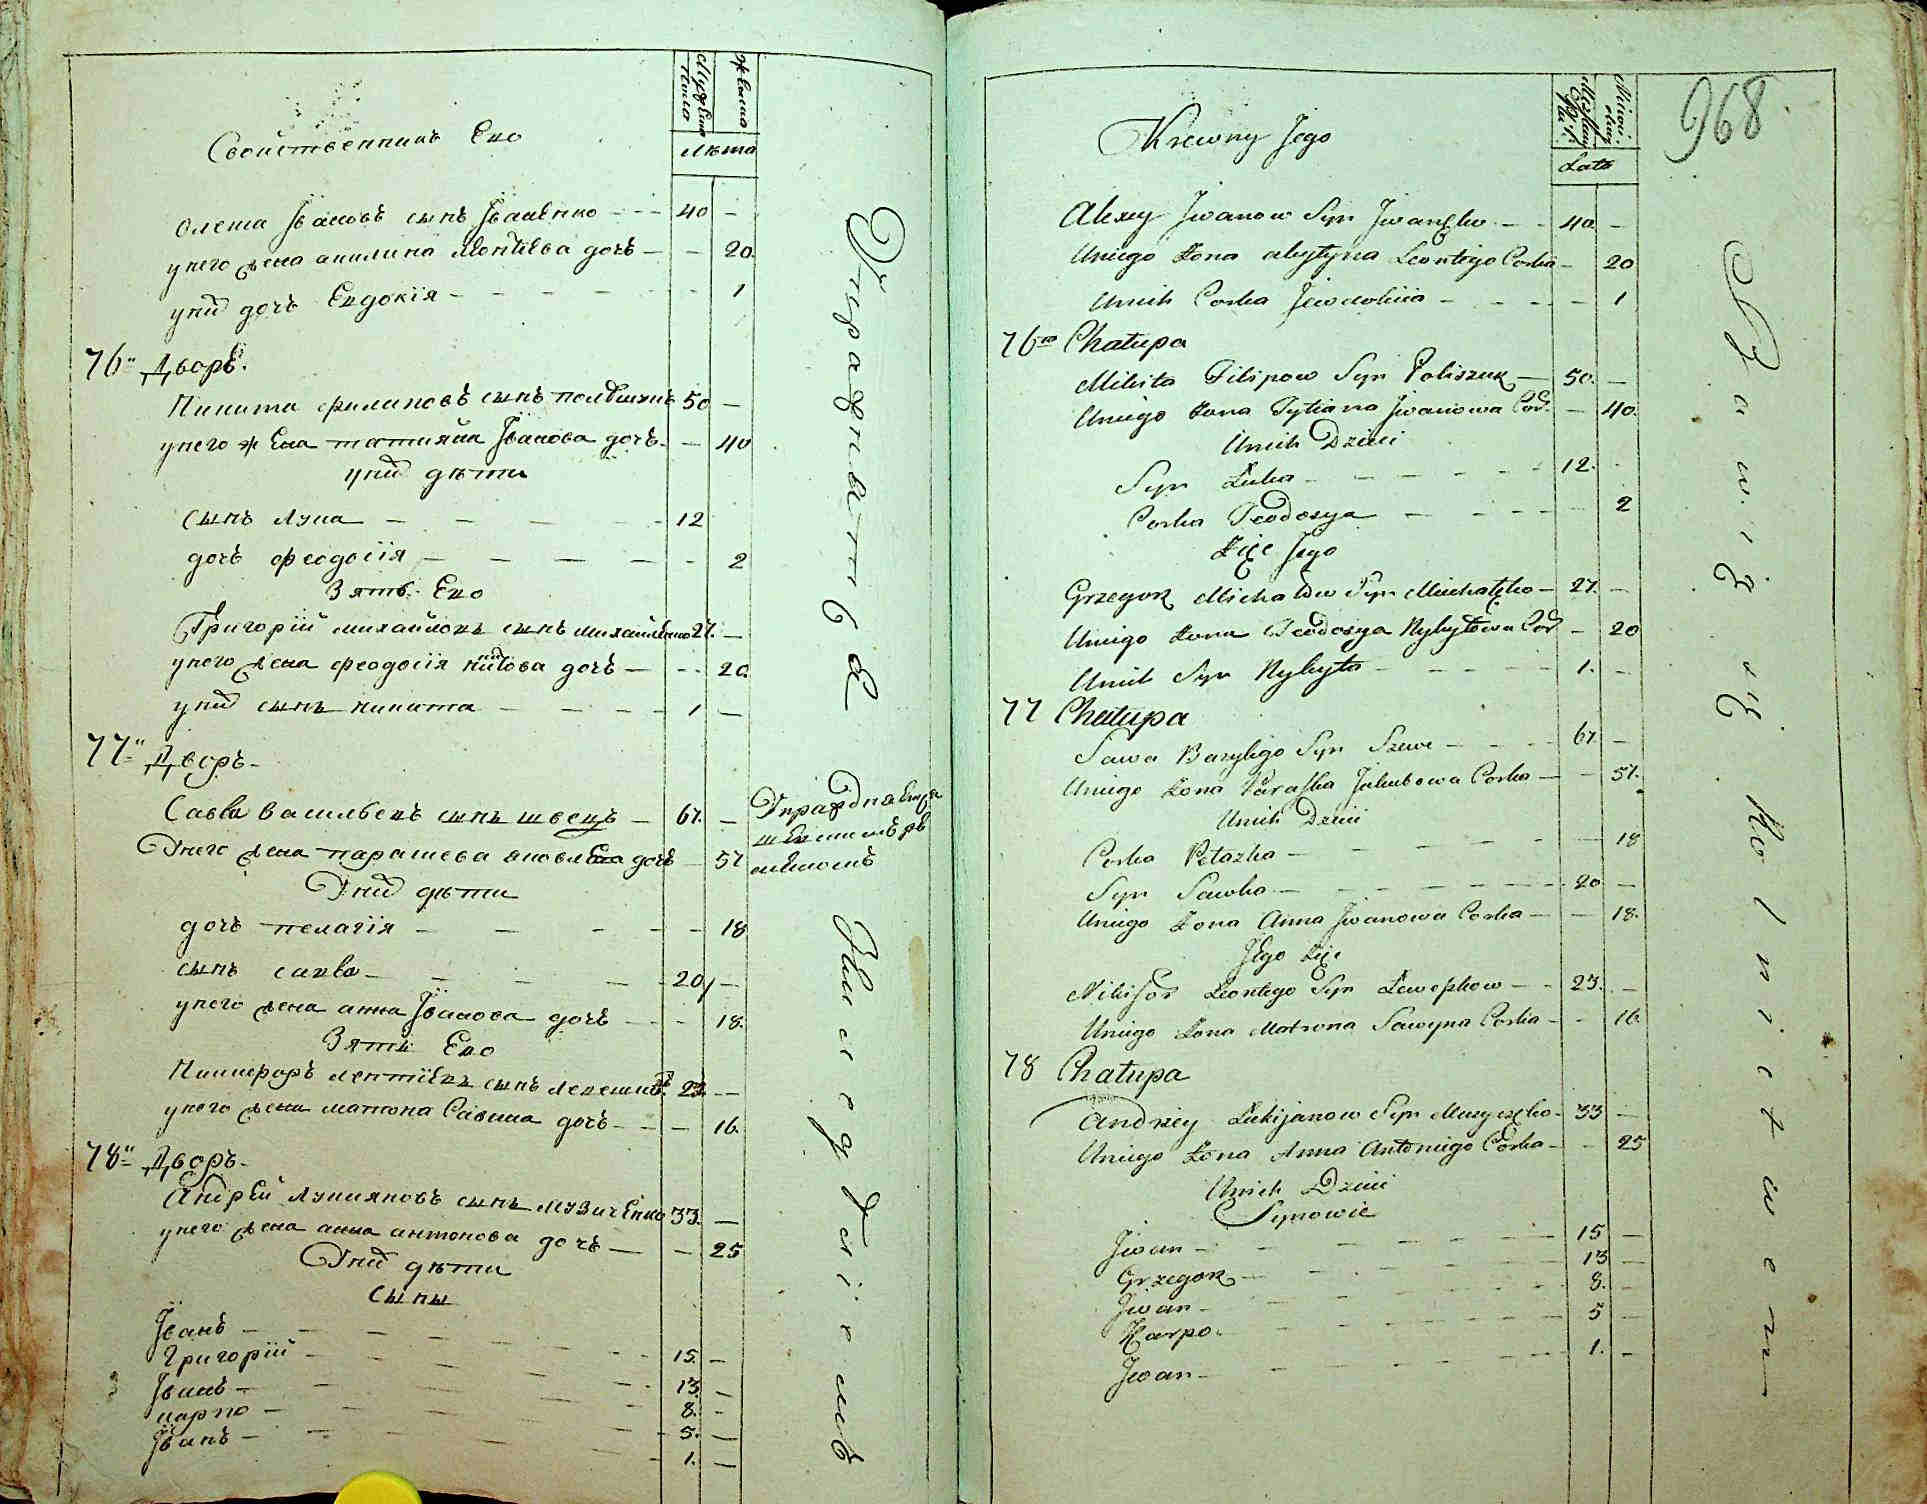 Свойственникъ Его
Мужеска пола
женска
Лѣта
Олекса Ївановъ сынъ Їваненко - - - 40 -
унего жена акилина Леонтїева дочь - - 20.
унихъ дочь Евдокїя - - - - - - 1
76й Дворъ.
Никита филиповъ сынъ полѣшукъ 50 -
унего жена татїяна Їванова дочь. - 40
унихъ дѣти
сынъ Лука - - - - - 12
дочь феодосїя - - - - - 2
Зять Его
Григорїй михайловъ сынъ михайленко 27. -
унего жена феодосїя никитова дочь - - - 20.
унихъ сынъ никита - - - - 1 -
77й Дворъ -
Савва васильевъ сынъ швецъ - 67. -
Унего жена парашева яковлева дочь - 57
Унихъ дѣти
дочь пелагїя - - - - - 18
сынъ савва - - - - 20 -
унего жена анна Їванова дочь - - - 18.
Зять Его
Никифоръ леонтїевъ сынъ левешко. 23. -
унего жена матрона Савина дочь - - - 16.
78й Дворъ -
Андрей Лукияновъ сынъ музиченко 33. -
унего жена анна антонова дочь - - 25
Унихъ дѣти
сыны
Їванъ - - - - - -
Григорїй - - - - - 15. -
Їванъ - - - - - 13. -
карпо - - - - - 8. -
Їванъ - - - - - 5. -
1. -
Упражняется
шевскимъ ре
месломъ
Упражняются
Земледѣлїемъ
968
Krewny Jego
Lata
Alexy Jwanow Syn Jwanęko - - 40. -
Uniego Żona Akytyna Leontego Corka - 20
Unich Corka Jewdokiia - - - - 1
76ta Chałupa
Mikita Filipow Syn Poliszuk - 50. -
Uniego Żona Tytiana Jwanowa Cor. - 40.
Unich Dzieci
Syn Łuka - - - - - - 12. -
Corka Teodosya - - - - - 2
Zięc Jego
Grzegorz Michałow Syn Michałęko - 27. -
Uniego Żona Teodosya Nykytowa Cor. - 20
Unich Syn Nykyta - - - - - 1. -
77 Chałupa
Sawa Bazylego Syn Szewc - - - 67 -
Uniego Żona Paraska Jakubowa Corka - - 57.
Unich Dzieci
Corka Pełazka - - - - - - 18
Syn Sawka - - - - - - 20 -
Uniego Żona Anna Jwanowa Corka - - 18.
Jego Zięc
Nikifor Leontego Syn Lewephow - - 23. -
Uniego Żona Matrona Sawyna Corka - - 16
78 Chałupa
Andrzey Łukijanow Syn Muzyczęko - 33 -
Uniego Żona Anna Antoniego Corka - - 25
Unich Dzieci
Synowie
Jwan - - - - - - 15 -
Grzegorz - - - - - 13 -
Jwan - - - - - 8. -
Karpo - - - - - 5 -
Jwan - - - - - 1. -
Bawią się Rolnictwem